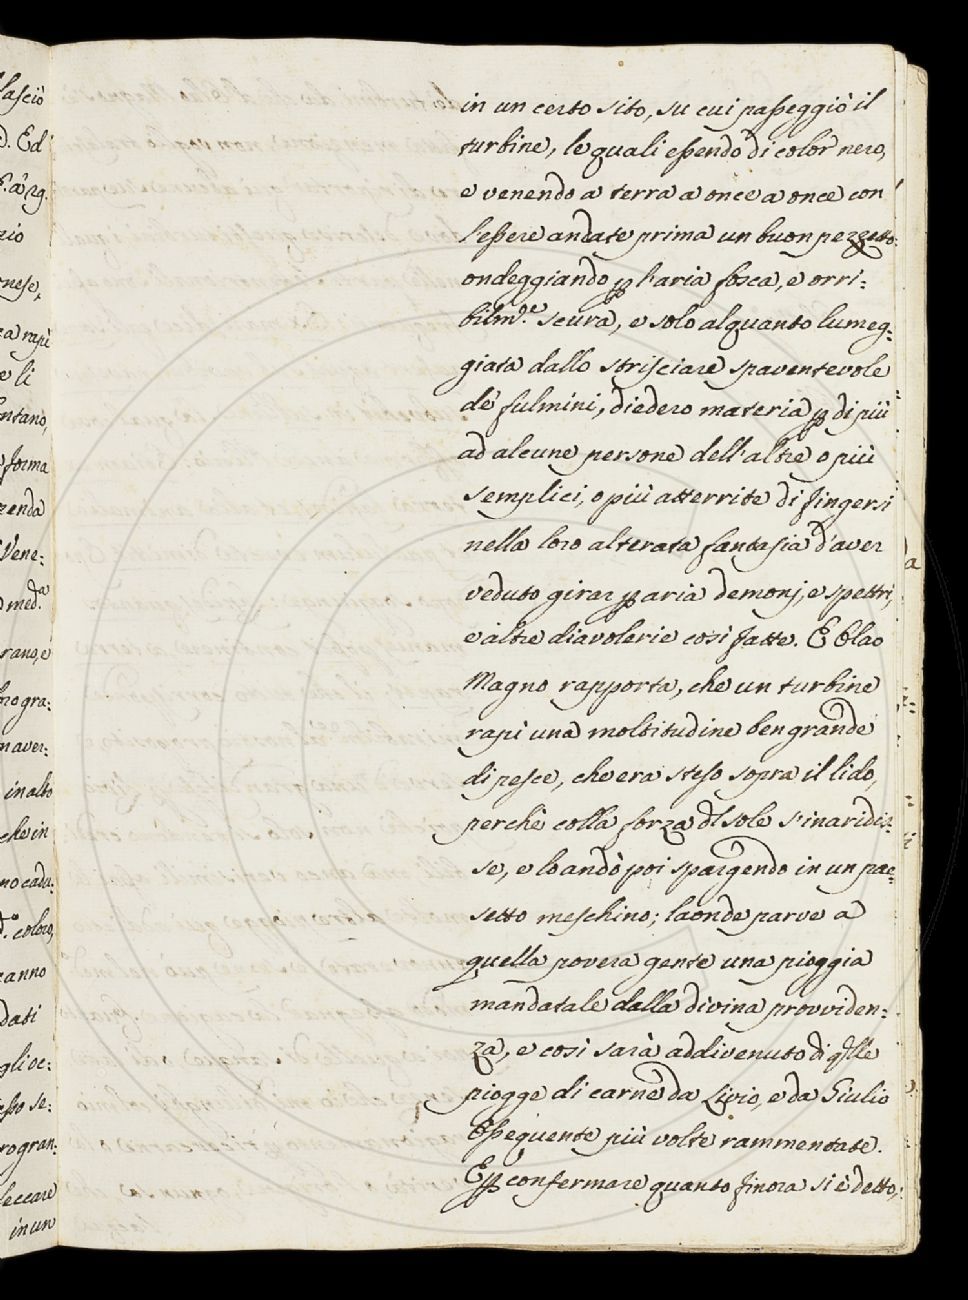 lasciò
D. Ed
nese,
za rapì
e li
ntano,
forma
zenda
Vene-
D med.a
rano, e
n aver-
in alto
che in
no cadu-
coloro,
ranno
dati
gli oc-
sso se-
rogran-
leccare
in un
in un certo sito, su cui passeggiò il
turbine, le quali essendo di color nero,
e venendo a terra a once a once con
l'essere andate prima un buon pezzetto
ondeggiando p l'aria fosca, e orri-
bilm.te scura, e solo alquanto lumeg-
giata dallo strisciare spaventevole
de' fulmini, diedero materia p di più
ad alcune persone dell'altre o più
semplici, o più atterrite di fingersi
nella loro alterata fantasia d'aver
veduto girar p aria demonj, e spettri,
e altre diavolerie così fatte. E Olao
Magno rapporta, che un turbine
rapì una moltitudine ben grande
di pesce, che era steso sopra il lido,
perchè colla forza dl sole s'inaridis-
se, e lo andò poi spargendo in un pae-
setto meschino; laonde parve a
quella povera gente una pioggia
mandatale dalla divina provviden-
za, e così sarà addivenuto di qlle
piogge di carne da Livio, e da Giulio
Ossequente più volte rammentate.
E p confermare quanto finora si è detto,